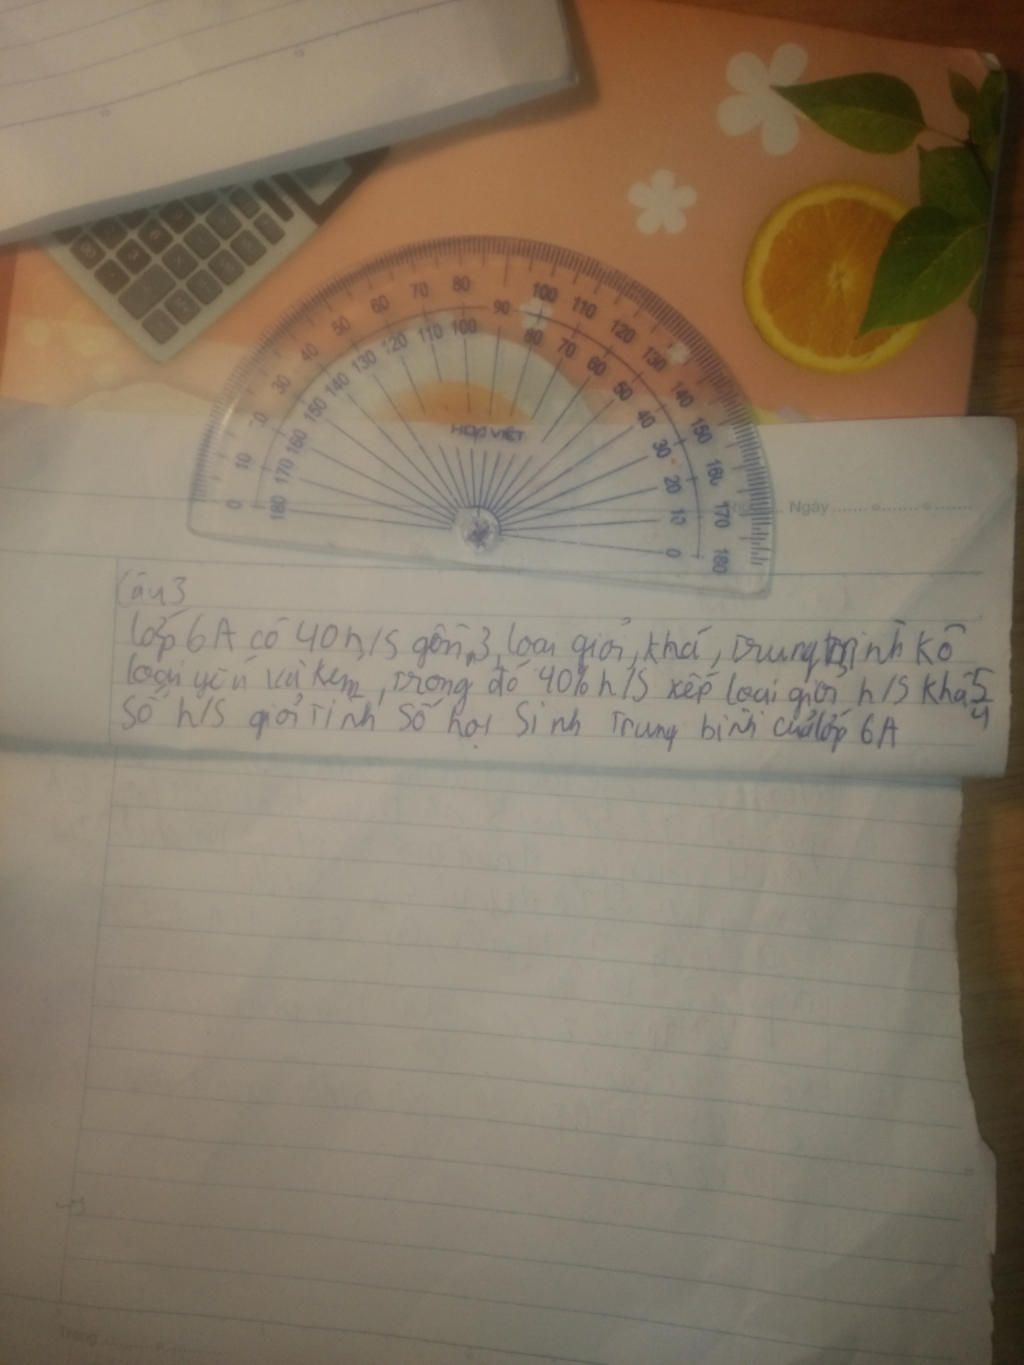 80 90 100 110
70 120
60 130
50 140
40 150
30 160
10 170
0 180
100 80
110 70
120 60
130 50
140 40
150 30
160 20
170 10
180 0
HOP VIET
Ngày
Câu 3
lớp 6A có 40 h/s gồm 3 loại giỏi, khá, trung bình kô
loại yếu và kém, trong đó 40% h/s xếp loại giỏi h/s khá 5/4
số h/s giỏi Tính số học sinh Trung bình của lớp 6A
Trang